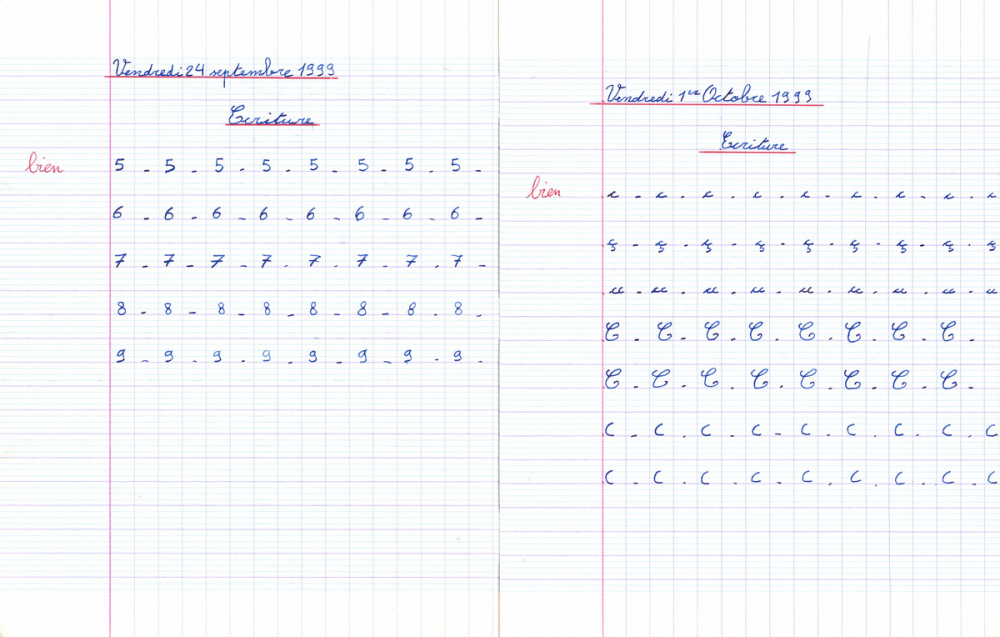 Vendredi 24 septembre 1999
Ecriture
bien
5 - 5 - 5 - 5 - 5 - 5 - 5 - 5 -
6 - 6 - 6 - 6 - 6 - 6 - 6 - 6 -
7 - 7 - 7 - 7 - 7 - 7 - 7 - 7 -
8 - 8 - 8 - 8 - 8 - 8 - 8 - 8 -
9 - 9 - 9 - 9 - 9 - 9 - 9 - 9 -
Vendredi 1er Octobre 1999
Ecriture
bien
c - c - c - c - c - c - c - c - c
ç - ç - ç - ç - ç - ç - ç - ç - ç
cc - cc - cc - cc - cc - cc - cc - cc - cc
C - C - C - C - C - C - C - C -
C - C - C - C - C - C - C - C -
C - C - C - C - C - C - C - C - C
C - C - C - C - C - C - C - C - C